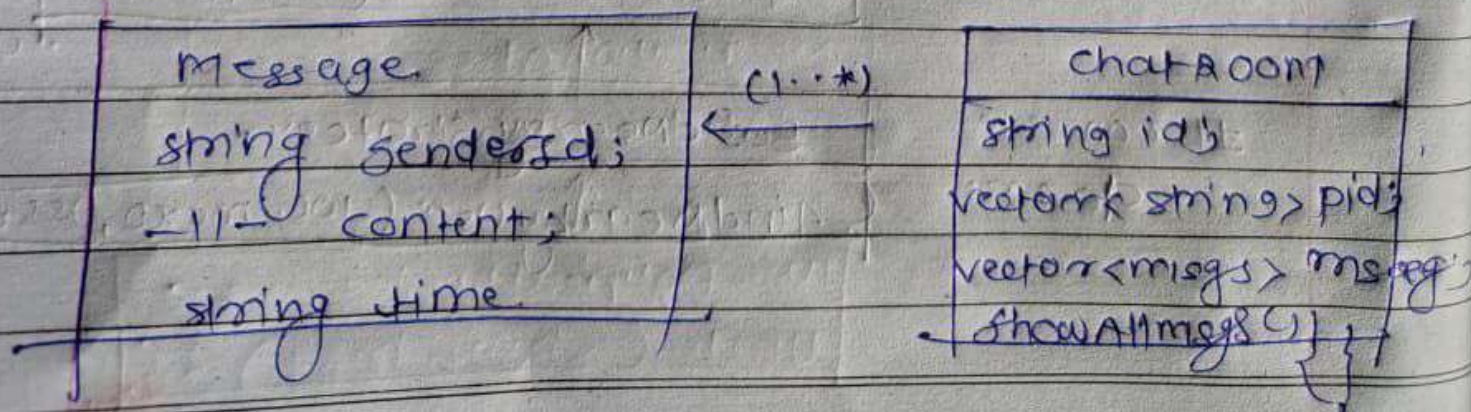 Message
string senderId;
-11- content;
string time
(1..*)
ChatRoom
string id;
vector<string> pid;
vector<msgs>
showAllmsgs() {}